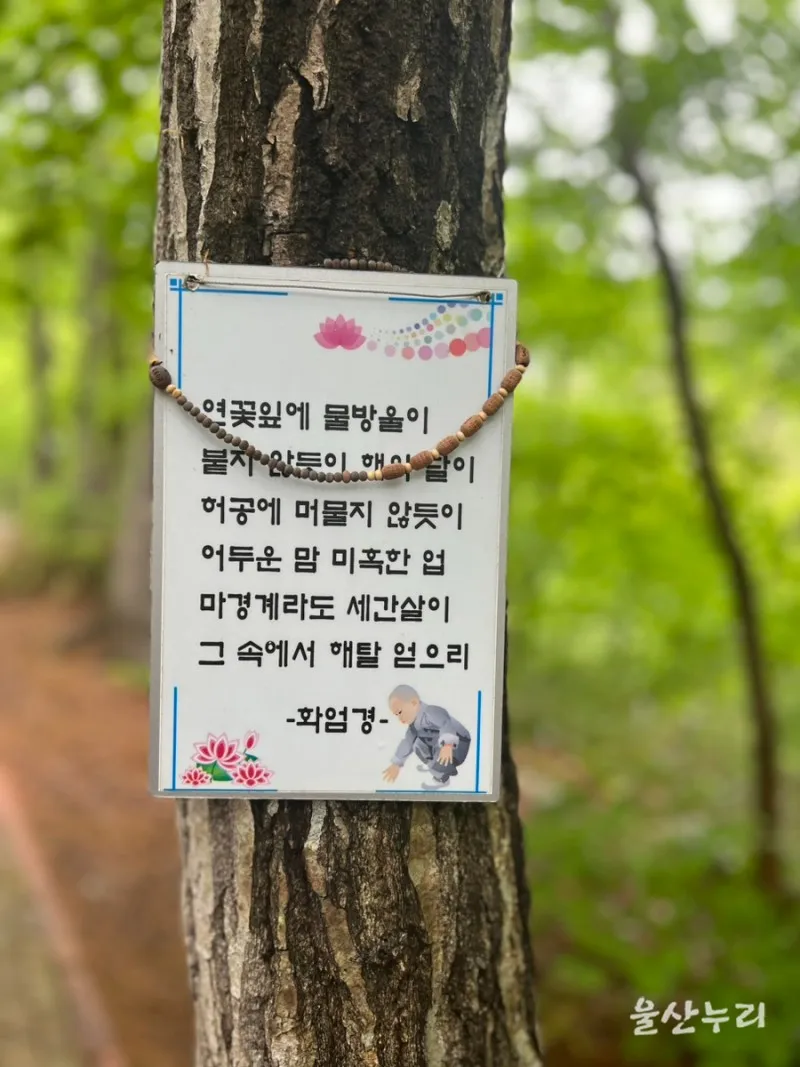 연꽃잎에 물방울이
붙지 않듯이 해와 달이
허공에 머물지 않듯이
어두운 맘 미혹한 업
마경계라도 세간살이
그 속에서 해탈 얻으리
-화엄경-
울산누리